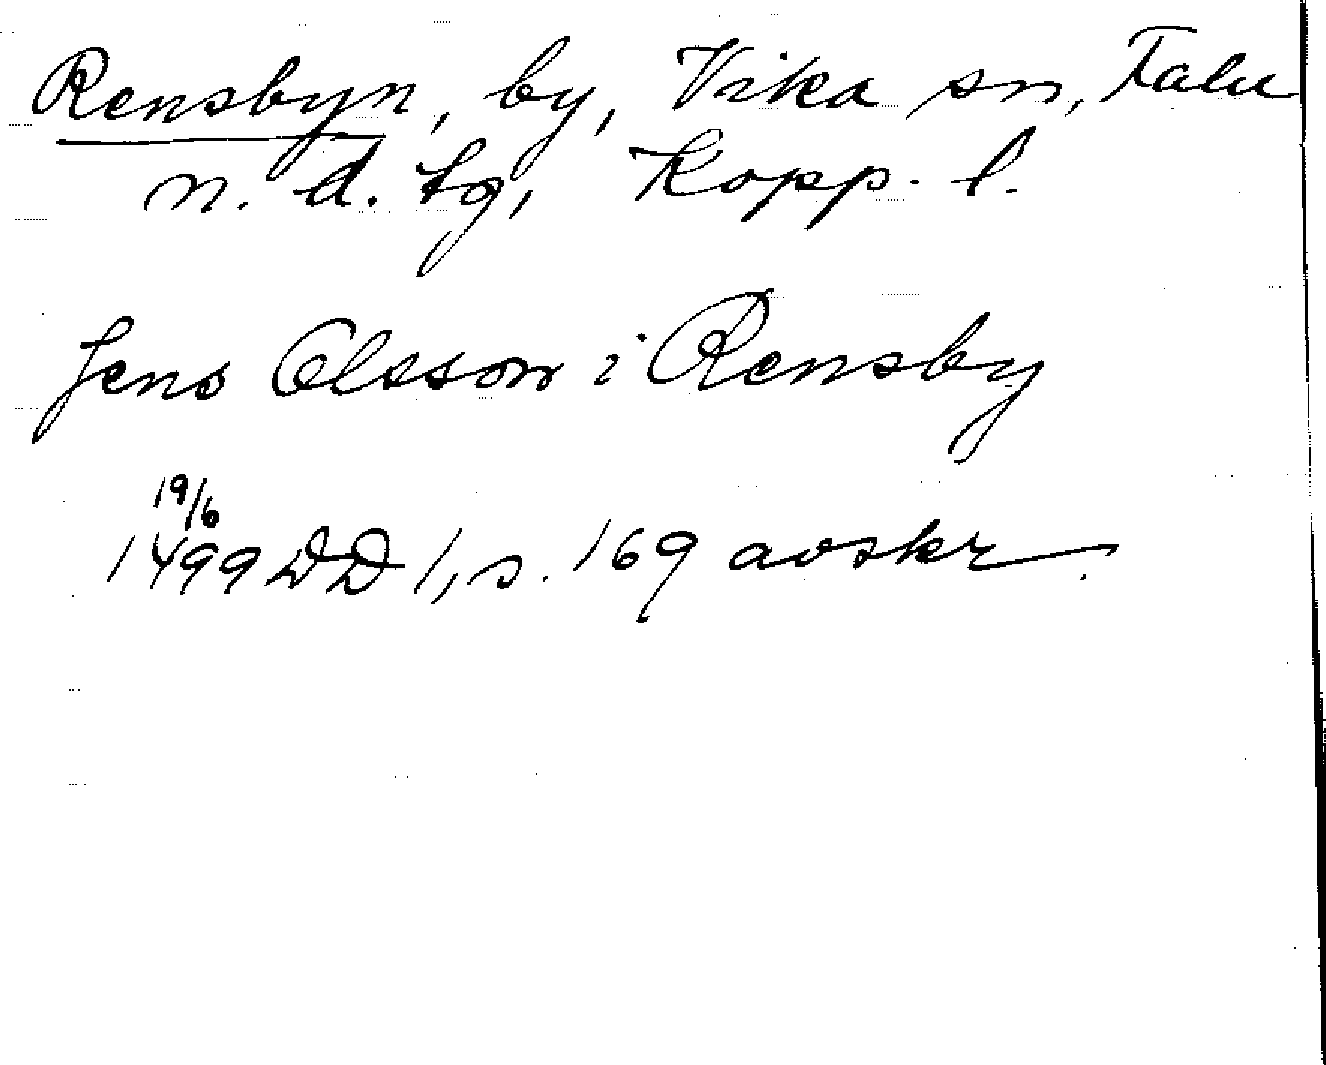 Rensbyn, by, Vika sn, Falu
n. d. tg, Kopp. l.
Jens Olsson i Rensby
19/6
1499 DD 1, s. 169 avskr.